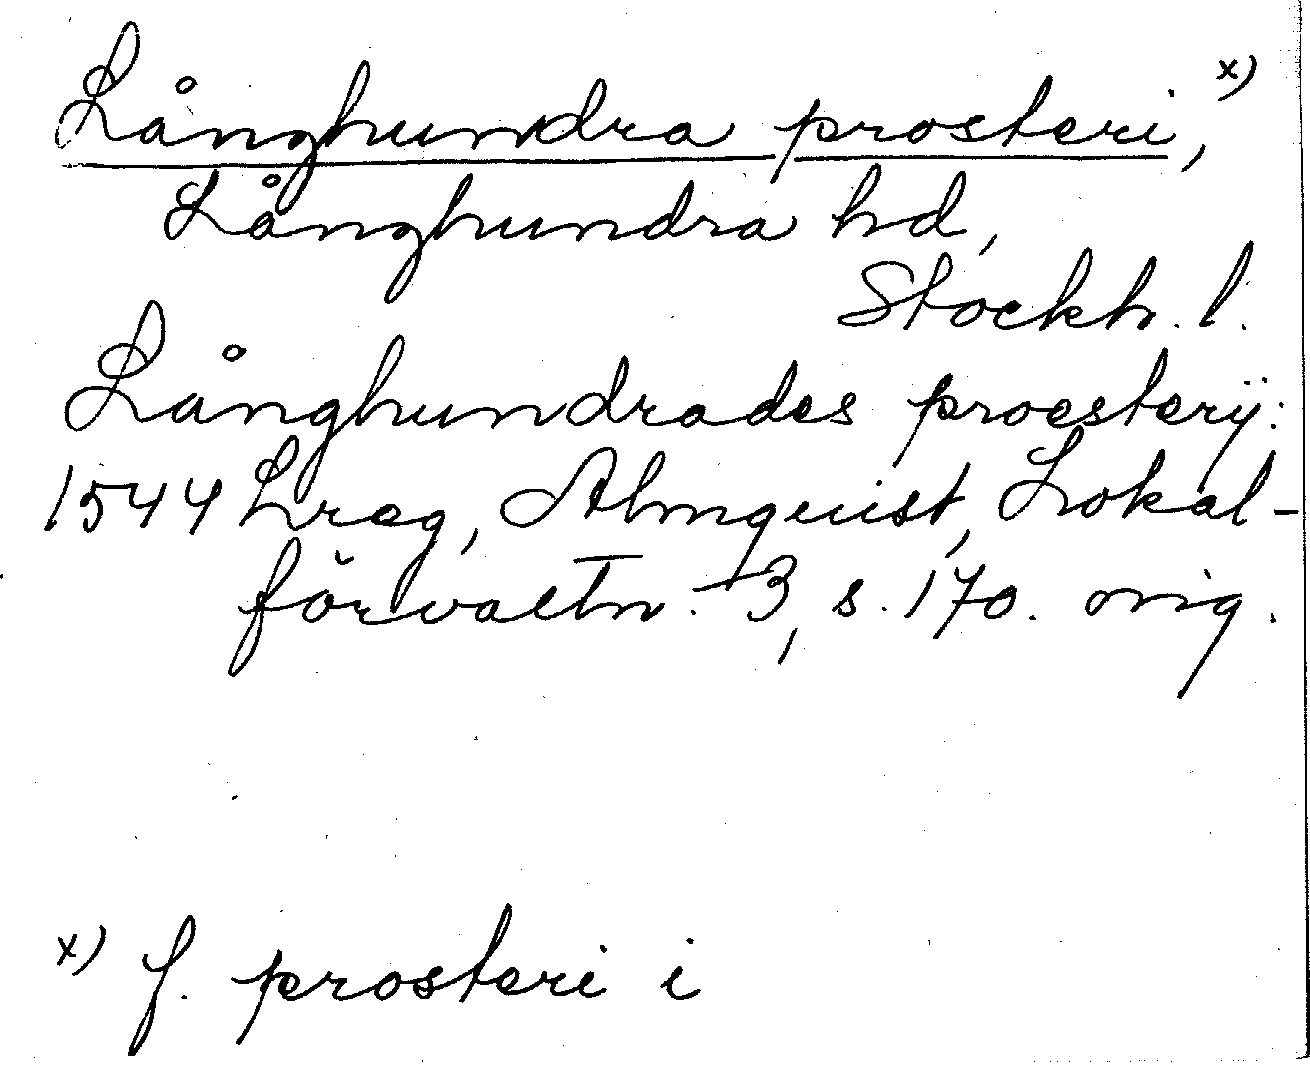 Långhundra prosteri, x)
Långhundra hd,
Stockh. l.
Långhundrades proesterÿ:
1544 Lreg, Almquist, Lokal-
förvaltn. 3, s. 170. orig.
x) f. prosteri i